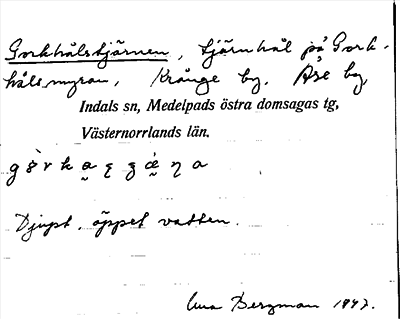 Gorkhålstjärnen, tjärnhål på Gork-
hålsmyran, Krånge by, Åse by
Indals sn, Medelpads östra domsagas tg,
Västernorrlands län.
Djupt, öppet vatten.
Bergman 1947.